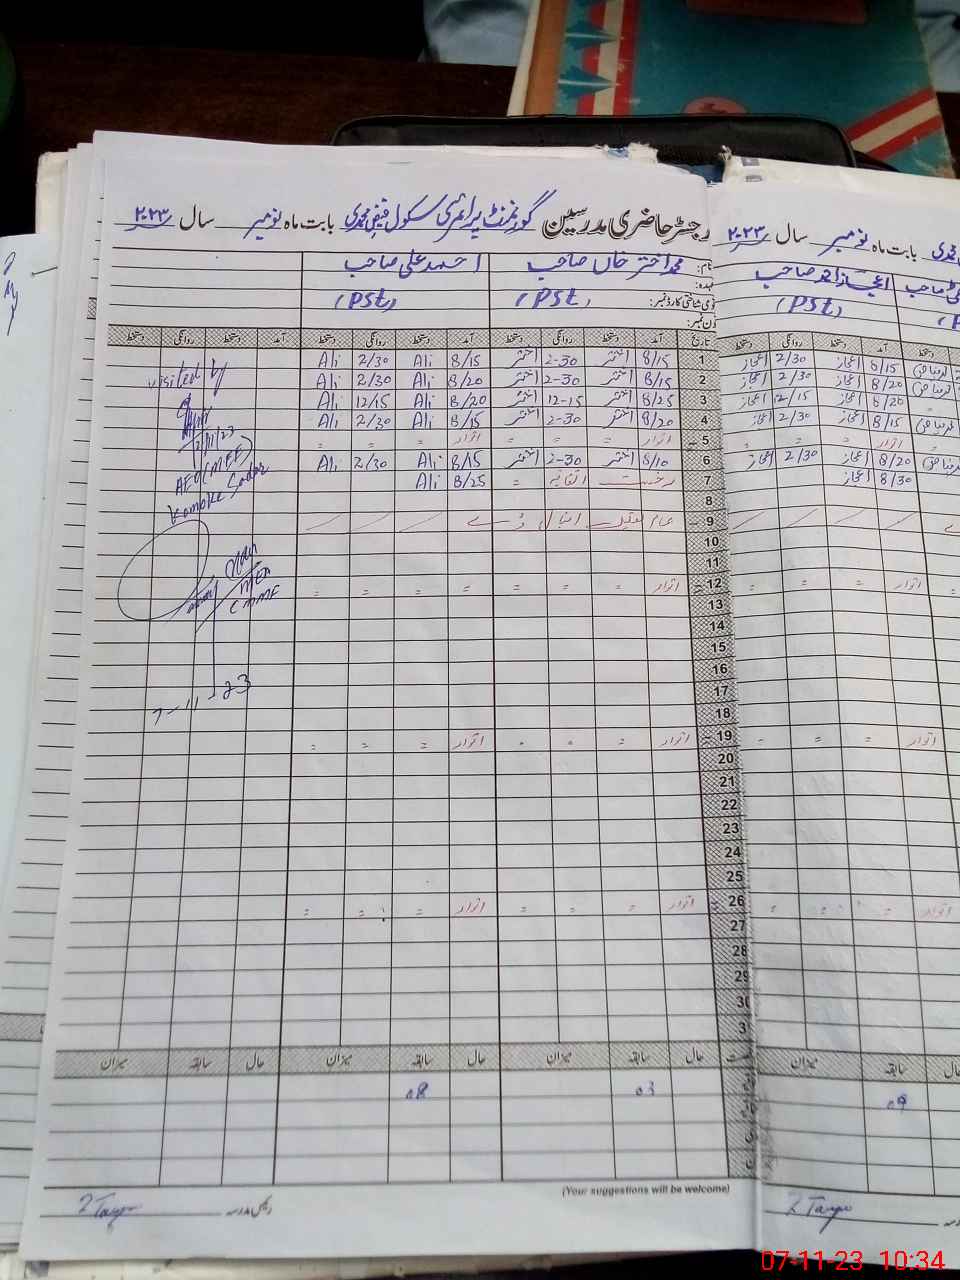 رجسٹر حاضری مدرسین گورنمنٹ پرائمری سکول فیض محمدی بابت ماہ نومبر سال ۲۰۲۳
محمد اختر خاں صاحب احمد علی صاحب
(PST) (PST)
تاریخ آمد دستخط روانگی دستخط آمد دستخط روانگی دستخط آمد دستخط روانگی دستخط
1 8/15 اختر 2-30 اختر 8/15 Ali 2/30 Ali
2 8/15 اختر 2-30 اختر 8/20 Ali 2/30 Ali
3 8/25 اختر 12-15 اختر 8/20 Ali 12/15 Ali
4 8/20 اختر 2-30 اختر 8/15 Ali 2/30 Ali
5 اتوار = = = اتوار = = =
6 8/10 اختر 2-30 اختر 8/15 Ali 2/30 Ali
7 رخصت اتفاقیہ = 8/25 Ali
8
9 عام تعطیل اقبال ڈے
10
11
12 اتوار = = = اتوار = = =
13
14
15
16
17
18
19 اتوار = = = اتوار = = =
20
21
22
23
24
25
26 اتوار = = = اتوار = = =
27
28
29
30
3
visited by
2/11/23
AEO (MEE)
Kamoke Sadar
MEA
CMMF
7-11-23
حال سابقہ میزان حال سابقہ میزان حال سابقہ میزان
03 08
(Your suggestions will be welcome)
رئیس مدرسہ
بابت ماہ نومبر سال ۲۰۲۳
اعجاز احمد صاحب
(PST)
آمد دستخط روانگی دستخط
8/15 اعجاز 2/30 اعجاز
8/20 اعجاز 2/30 اعجاز
8/20 اعجاز 12/15 اعجاز
8/15 اعجاز 2/30 اعجاز
اتوار = = =
8/20 اعجاز 2/30 اعجاز
8/30 اعجاز
اتوار = = =
اتوار = = =
اتوار = = =
حال سابقہ میزان
09
07-11-23 10:34